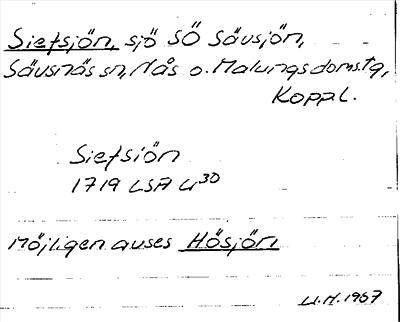 Sietsjön, sjö SÖ Sävsjön,
Sävsnäs sn, Nås o. Malungs doms.tg,
Kopp.l.
Sietsiön
1719 LSA U30
Möjligen avses Hösjön
U.H. 1967